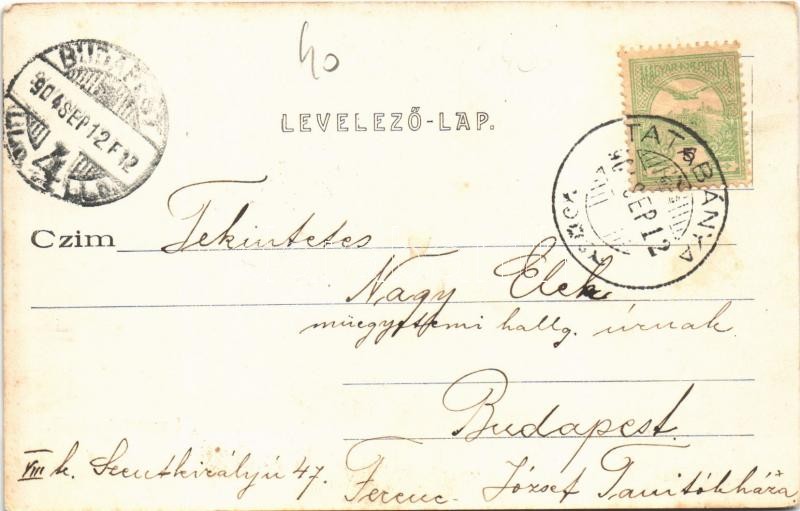 40
BUDAPEST
904 SEP 12 F 12
LEVELEZŐ-LAP.
MAGYAR KIR. POSTA
5
TATABÁNYA
904 SEP 12
Czim Tekintetes
Nagy Elek
műegyetemi hallg. úrnak
Budapest.
VIII k. Szentkirályi u 47. Ferenc József Tanítókháza